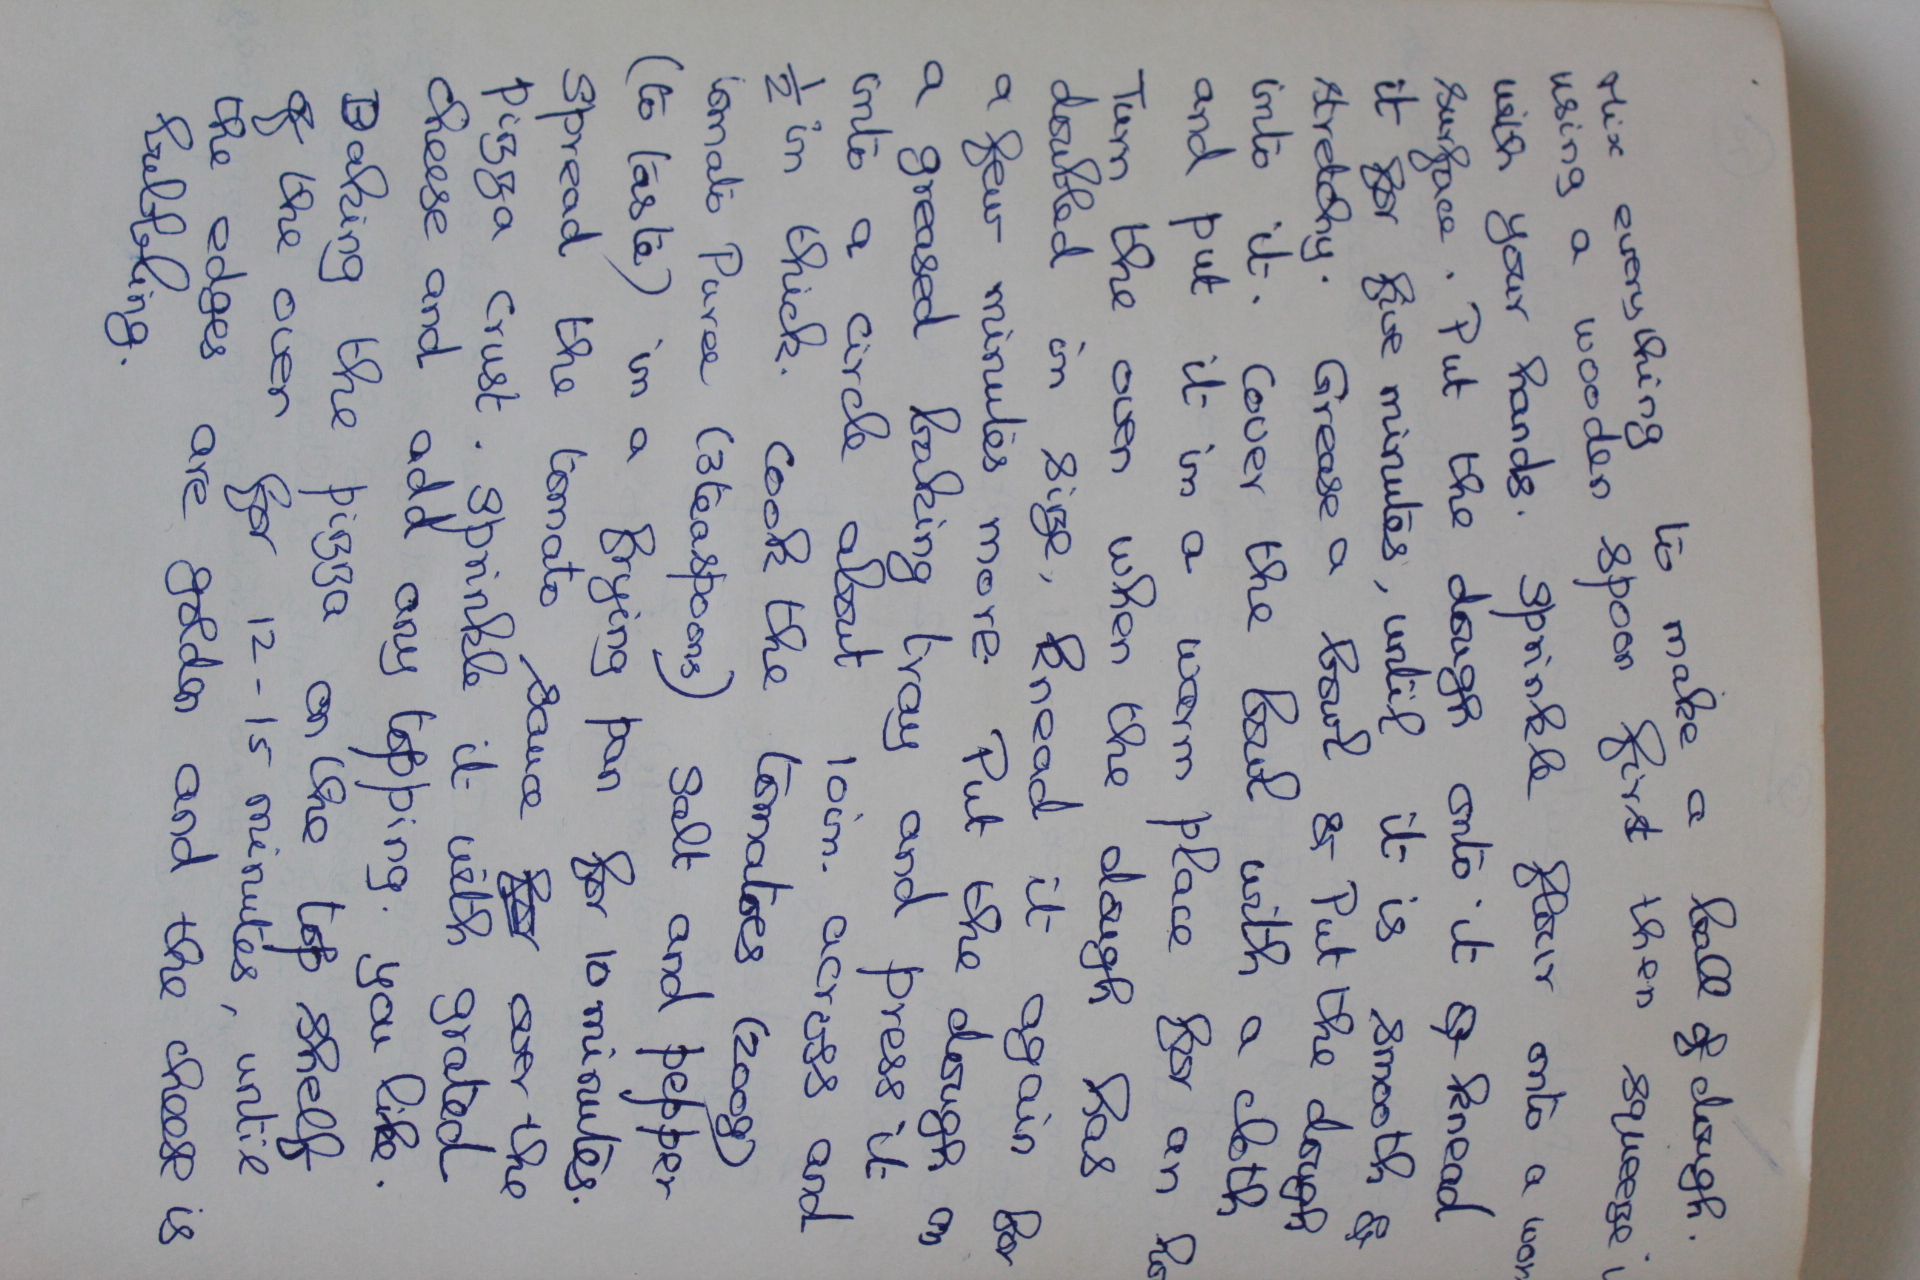 Mix everything to make a ball of dough.
using a wooden spoon first then squeeze
with your hands. Sprinkle flour onto a
surface. Put the dough onto it & knead
it for five minutes, until it is smooth &
stretchy. Grease a bowl & Put the dough
into it. Cover the bowl with a cloth
and put it in a warm place for an
Turn the oven when the dough has
doubled in size, knead it again for
a few minutes more. Put the dough on
a greased baking tray and press it
into a circle about 10in. across and
1/2 in thick. Cook the tomatoes (200g)
tomato Puree (3teaspoons) salt and pepper
(to taste) in a frying pan for 10 minutes.
Spread the tomato sauce over the
pizza crust. Sprinkle it with grated
cheese and add any topping you like.
Baking the pizza on the top shelf
of the oven for 12-15 minutes, until
the edges are golden and the cheese is
bubbling.